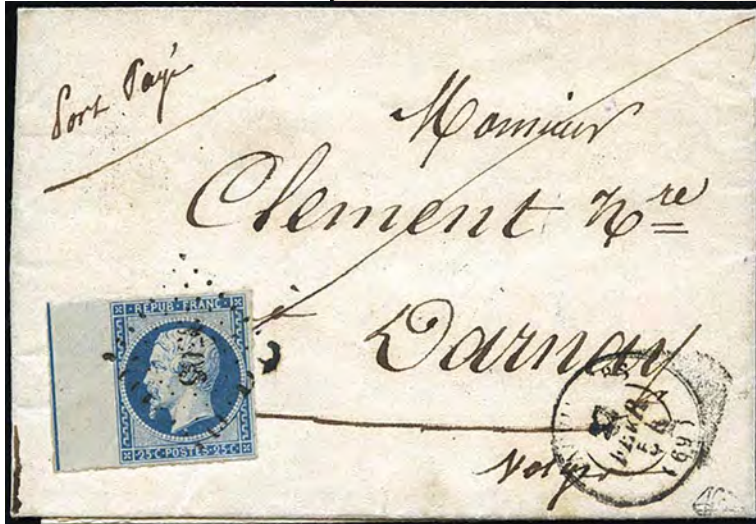 Port Payé
Monsieur
Clement Nre
à
Darnay
Vosges
REPUB·FRANC·
25C·POSTES·25C·
FEVR
(69)